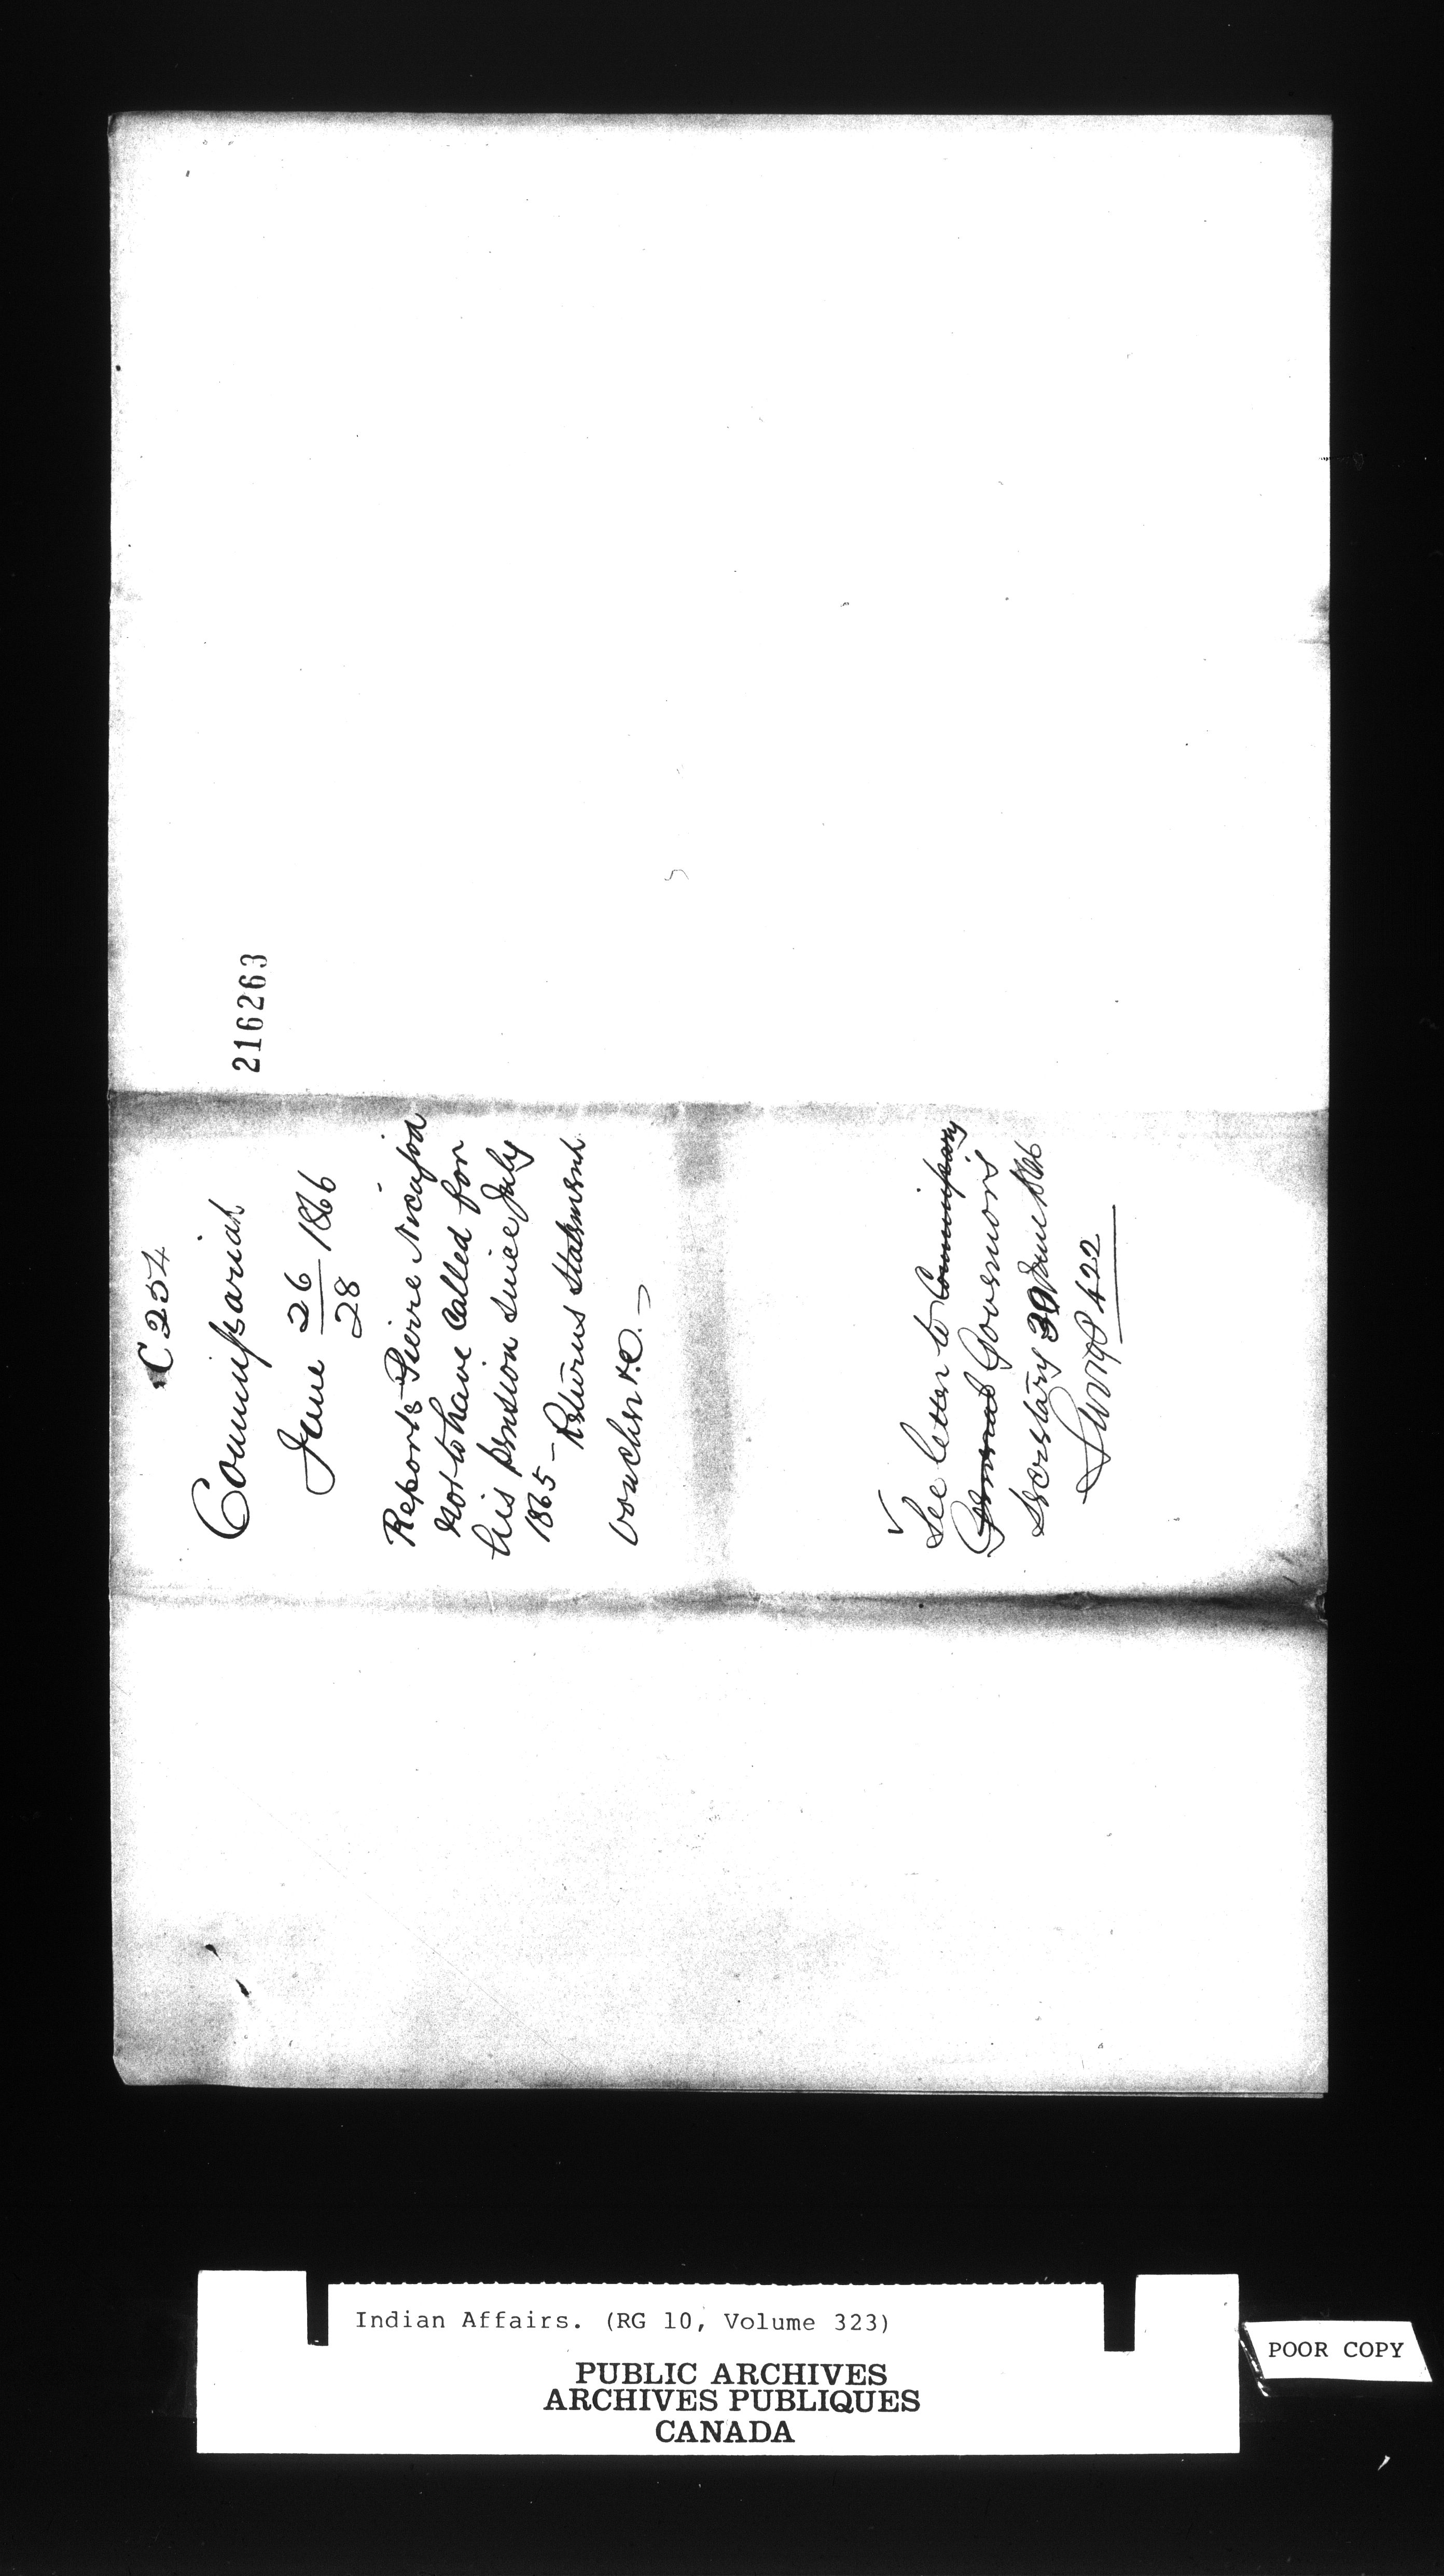 216263
C 254
Commissariat
June 26/28 1866
Reports Pierre
not to have called for
his pension since July
1865 - Returns Statement
voucher &c. -
See letter to Commissary
General Governor's
Secretary 30 June 1866
422
Indian Affairs. (RG 10, Volume 323)
PUBLIC ARCHIVES
ARCHIVES PUBLIQUES
CANADA
POOR COPY